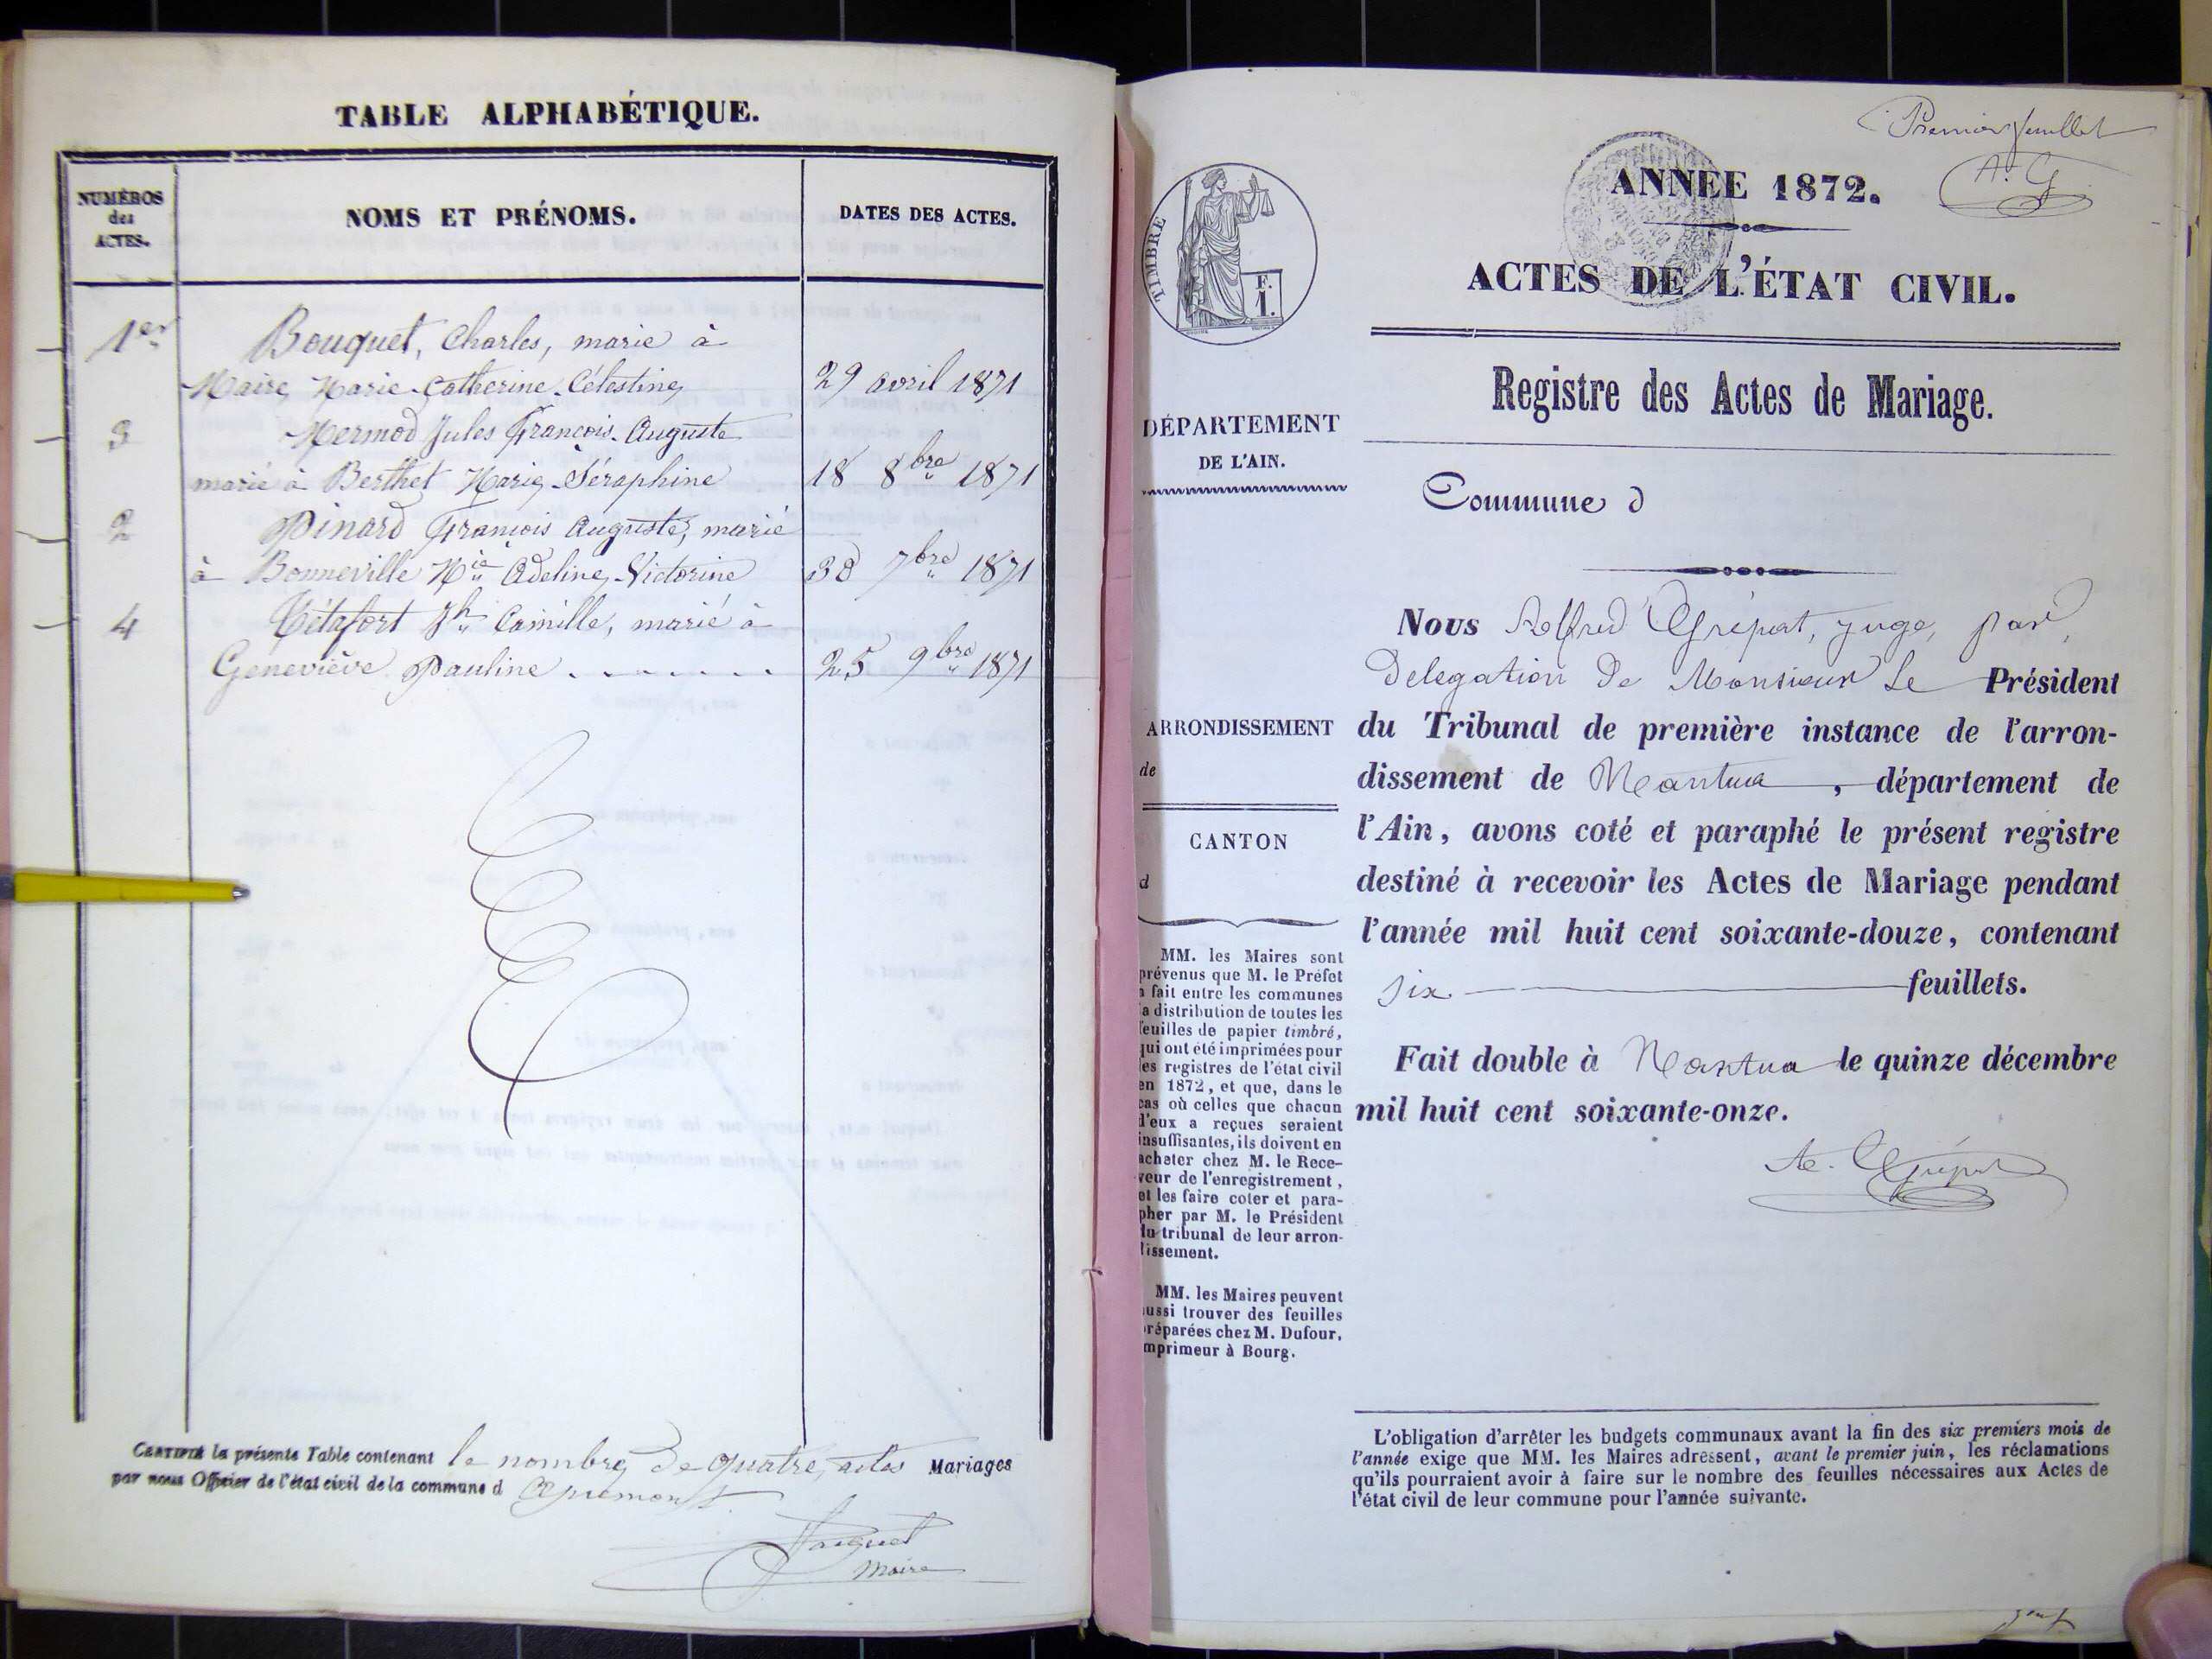 TABLE ALPHABÉTIQUE.
NUMÉROS
des
ACTES.
NOMS ET PRÉNOMS.
DATES DES ACTES.
1er
Bouquet, Charles, marié à
Maire, Marie-Catherine-Célestine
29 avril 1871
3
Mermod Jules François-Auguste
marié à Berthet Marie-Séraphine
18 8bre 1871
2
Pinard François Auguste, marié
à Bonneville Mie Adeline-Victorine
30 7bre 1871
4
Tétafort Jh Camille, marié à
Geneviève Pauline . . . . . . .
25 9bre 1871
CERTIFIÉ la présente Table contenant le nombre de quatre, actes Mariages
par nous Officier de l'état civil de la commune d Apremont
Maire
Premier feuillet
A. G
ANNÉE 1872.
ACTES DE L'ÉTAT CIVIL.
TIMBRE
F.
1.
Registre des Actes de Mariage.
DÉPARTEMENT
DE L'AIN.
Commune d
Nous Alfred Grépat, juge, par
Délégation de Monsieur Le Président
ARRONDISSEMENT
de
du Tribunal de première instance de l'arron-
dissement de Nantua, département de
CANTON
d
l'Ain, avons coté et paraphé le présent registre
destiné à recevoir les Actes de Mariage pendant
l'année mil huit cent soixante-douze, contenant
six feuillets.
Fait double à Nantua le quinze décembre
mil huit cent soixante-onze.
A. Grépat
MM. les Maires sont
prévenus que M. le Préfet
a fait entre les communes
la distribution de toutes les
feuilles de papier timbré,
qui ont été imprimées pour
les registres de l'état civil
en 1872, et que, dans le
cas où celles que chacun
d'eux a reçues seraient
insuffisantes, ils doivent en
acheter chez M. le Rece-
veur de l'enregistrement,
et les faire coter et para-
pher par M. le Président
du tribunal de leur arron-
dissement.
MM. les Maires peuvent
aussi trouver des feuilles
préparées chez M. Dufour,
imprimeur à Bourg.
L'obligation d'arrêter les budgets communaux avant la fin des six premiers mois de
l'année exige que MM. les Maires adressent, avant le premier juin, les réclamations
qu'ils pourraient avoir à faire sur le nombre des feuilles nécessaires aux Actes de
l'état civil de leur commune pour l'année suivante.